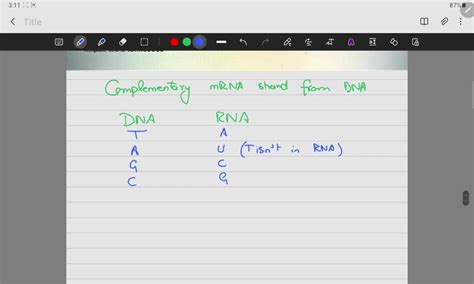 3:11
87%
Title
Complementary mRNA shand from DNA
DNA RNA
T A
A U (T isn't in RNA)
G C
C G